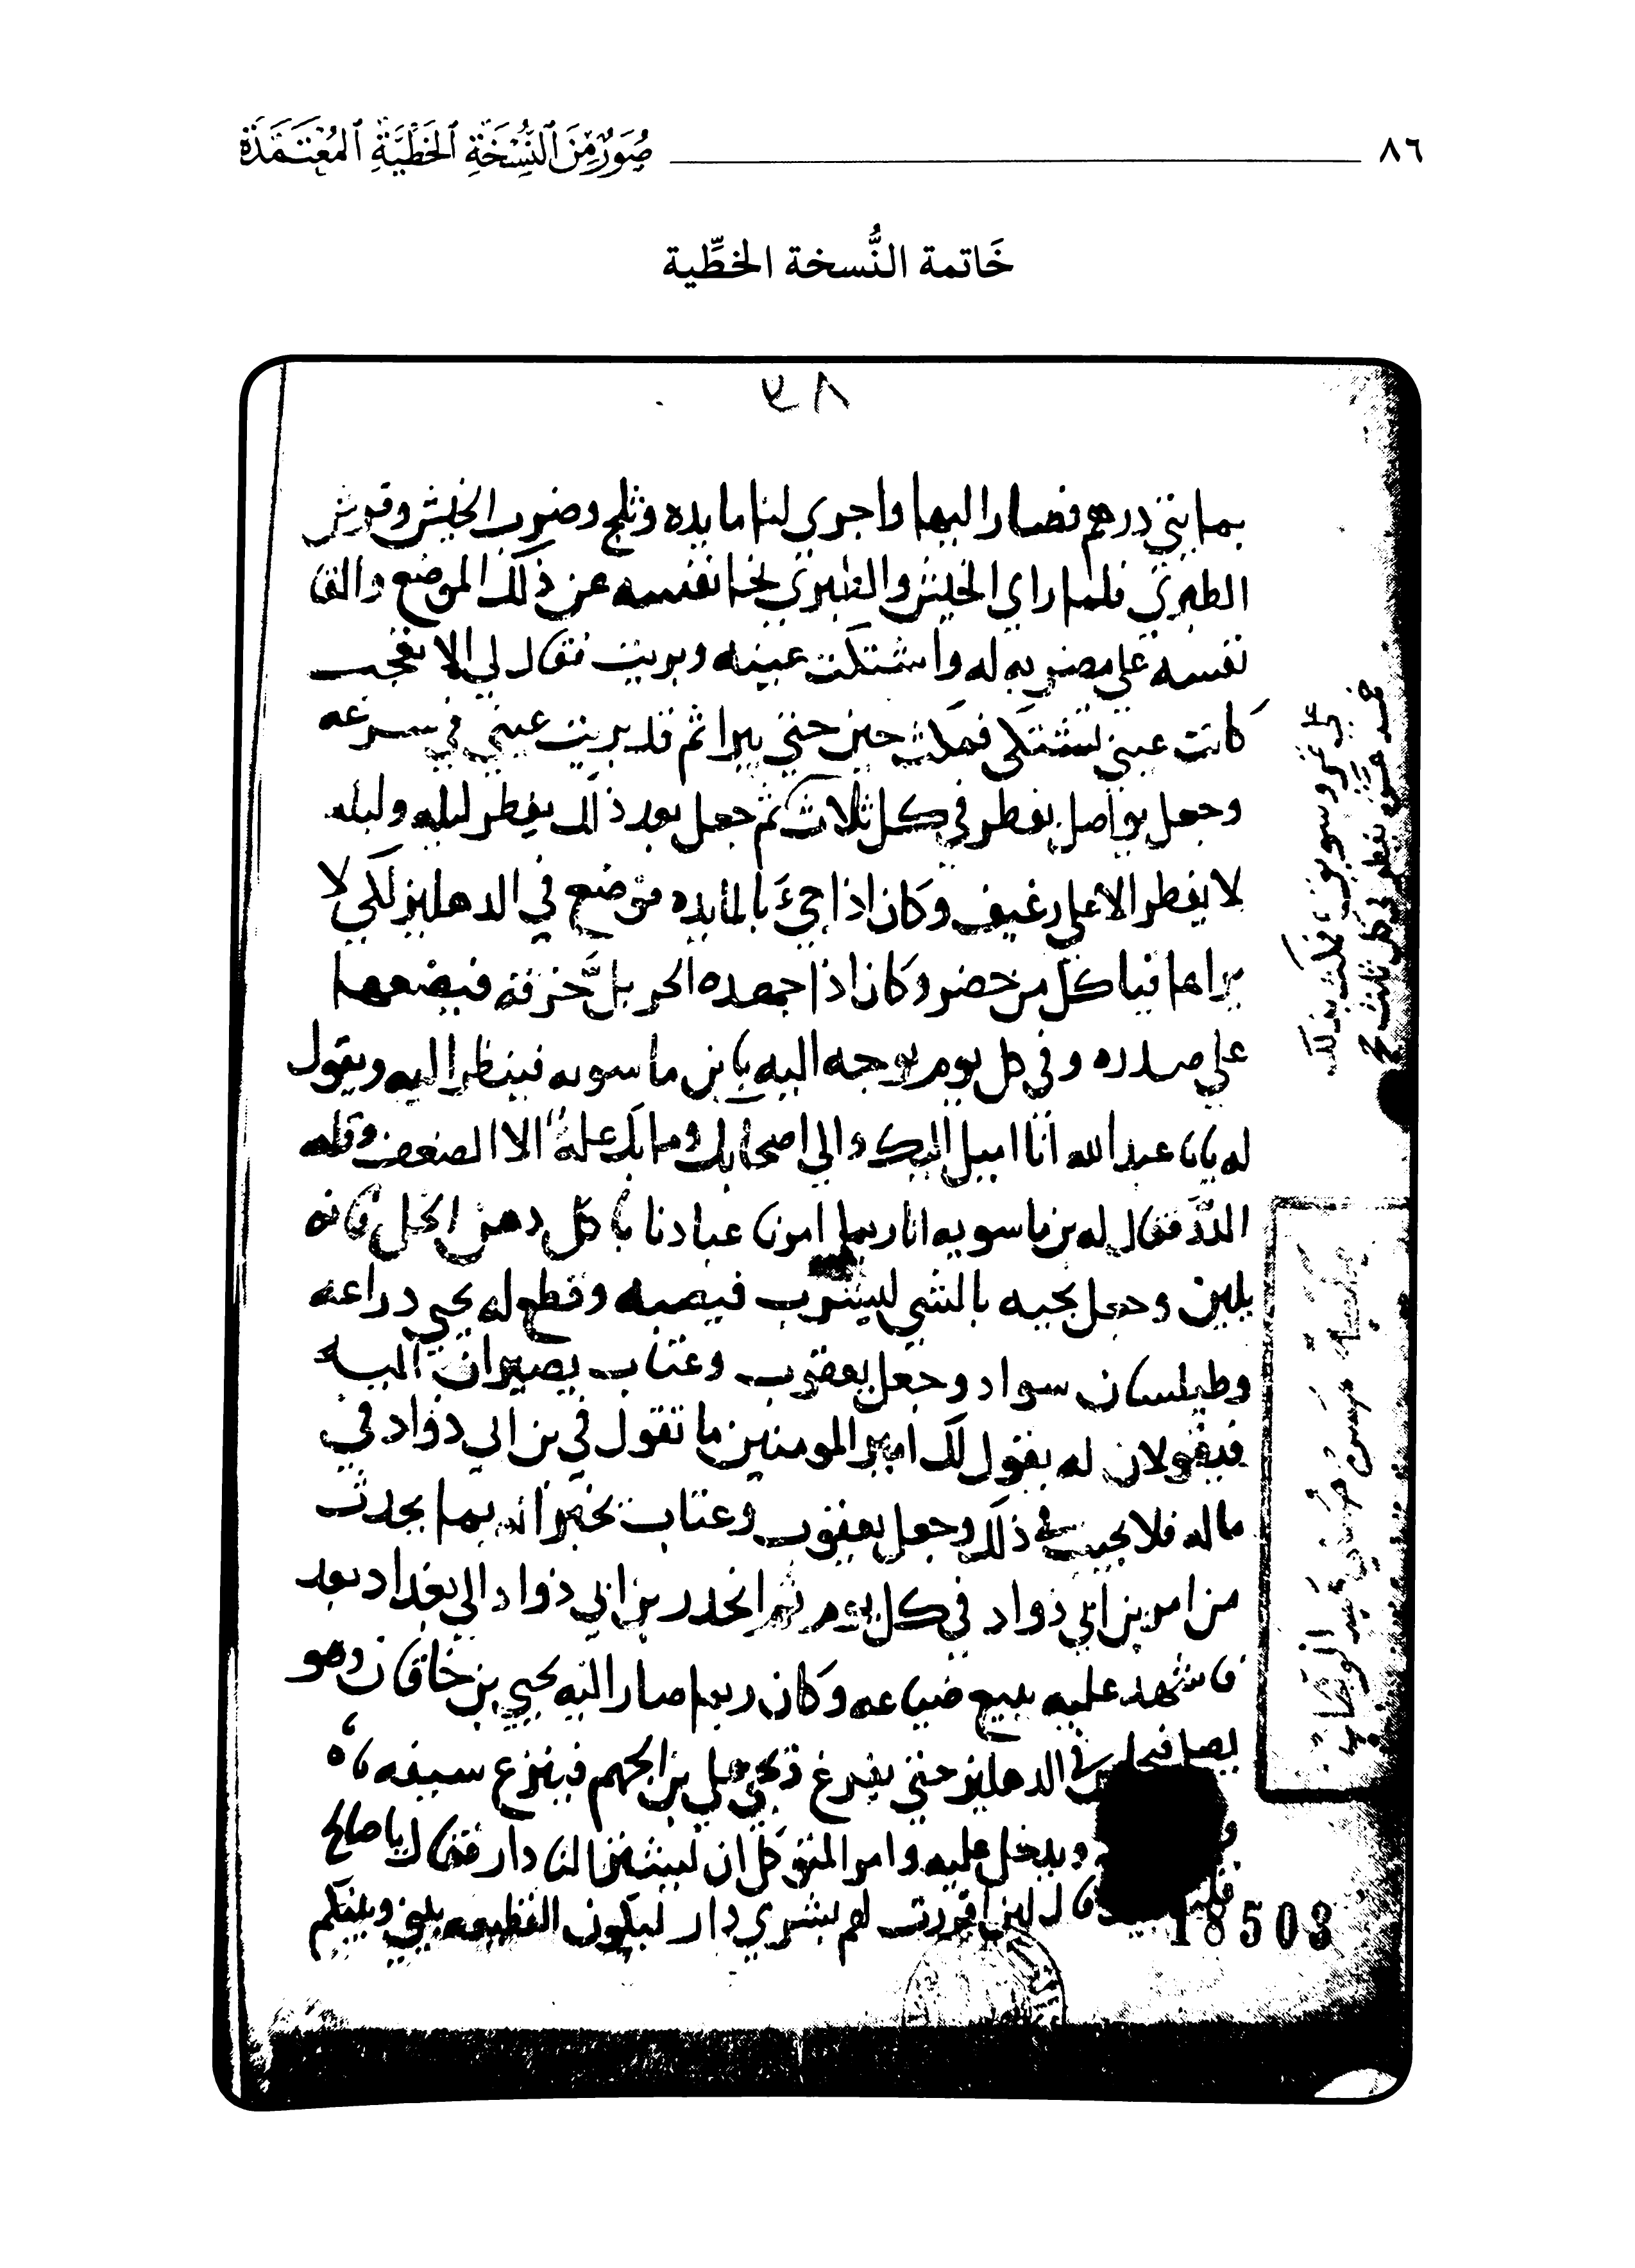 ٨٦
صُوَرٌ مِنَ ٱلنُّسْخَةِ ٱلخَطِّيَّةِ ٱلمُعْتَمَدَة
خَاتمة النُّسخة الخطِّية
بمايتي درهم فصار اليها واجري لنا مايده وثلج وضرب الخيش وفرش
الطبري فلما راي الخيش والطبري نحا نفسه عن ذلك الموضع والقا
نفسه علي مضربه له واشتكت عينه وبريت فقال لي الا تعجب
كانت عيني تشتكي فمكث حين حتي تبرا ثم قد بريت عيني في سرعه
وجعل يواصل يفطر في كل ثلاث ثم جعل بعد ذلك يفطر ليله وليله
لا يفطر الا علي رغيف وكان اذا جيء بالمايده توضع في الدهليز لكي لا
يراها فياكل من حضر وكان اذا اجهده الحر بل خرقه فيضعها
علي صدره وفي كل يوم يوجه اليه يابن ماسويه فينظر اليه ويقول
له يابا عبدالله انا اميل اليك والي اصحابك وما بك علة الا الضعف وقله
الدز فقال له بن ماسويه انا ربما امرنا عبادنا باكل دهن الحل فانه
يلين وجعل يجيه بالشي ليشرب فيصبه وقطع له يحيي دراعه
وطيلسان سواد وجعل يعقوب وعتاب يصيران اليه
فيقولان له يقول لك امير المومنين ما تقول في بن ابي دواد في
ماله فلا يجيب في ذلك وجعل يعقوب وعتاب يخبرانه بما يحدث
من امر بن ابي دواد في كل يوم ثم انحدر بن ابي دواد الي بغداد بعد
ما شهد عليه ببيع ضياعه وكان ربما صار اليه يحيي بن خاقان وهو
يصلي فيجلس في الدهليز حتي يفرغ ويجي علي بن الجهم فينزع سيفه
ويدخل عليه وامر المتوكل ان يشتري لنا دار فقال يا صالح
قال لين اقررت لهم بشري دار ليكون القطيعه بيني وبينكم
علي تمر وسويق فمكث بذلك
خمسه عشر يفطر في كل ثلاث
18503